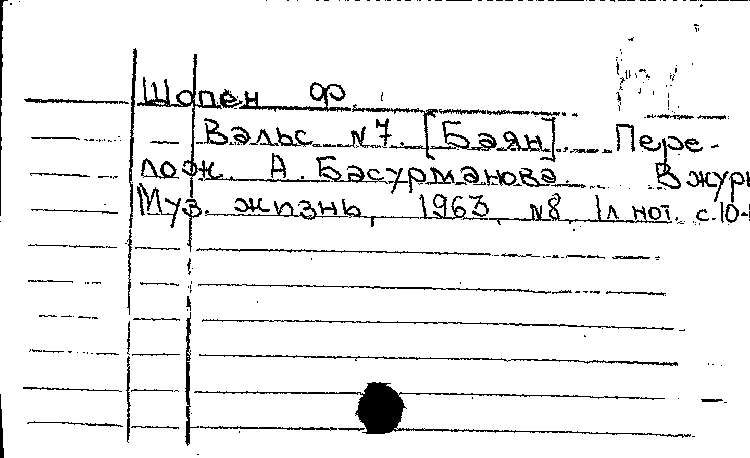 Шопен Ф.
Вальс №7. [Баян]. Пере-
лож. А. Басурманова. В журн
Муз. жизнь, 1963, №8, 1л нот. с.10-